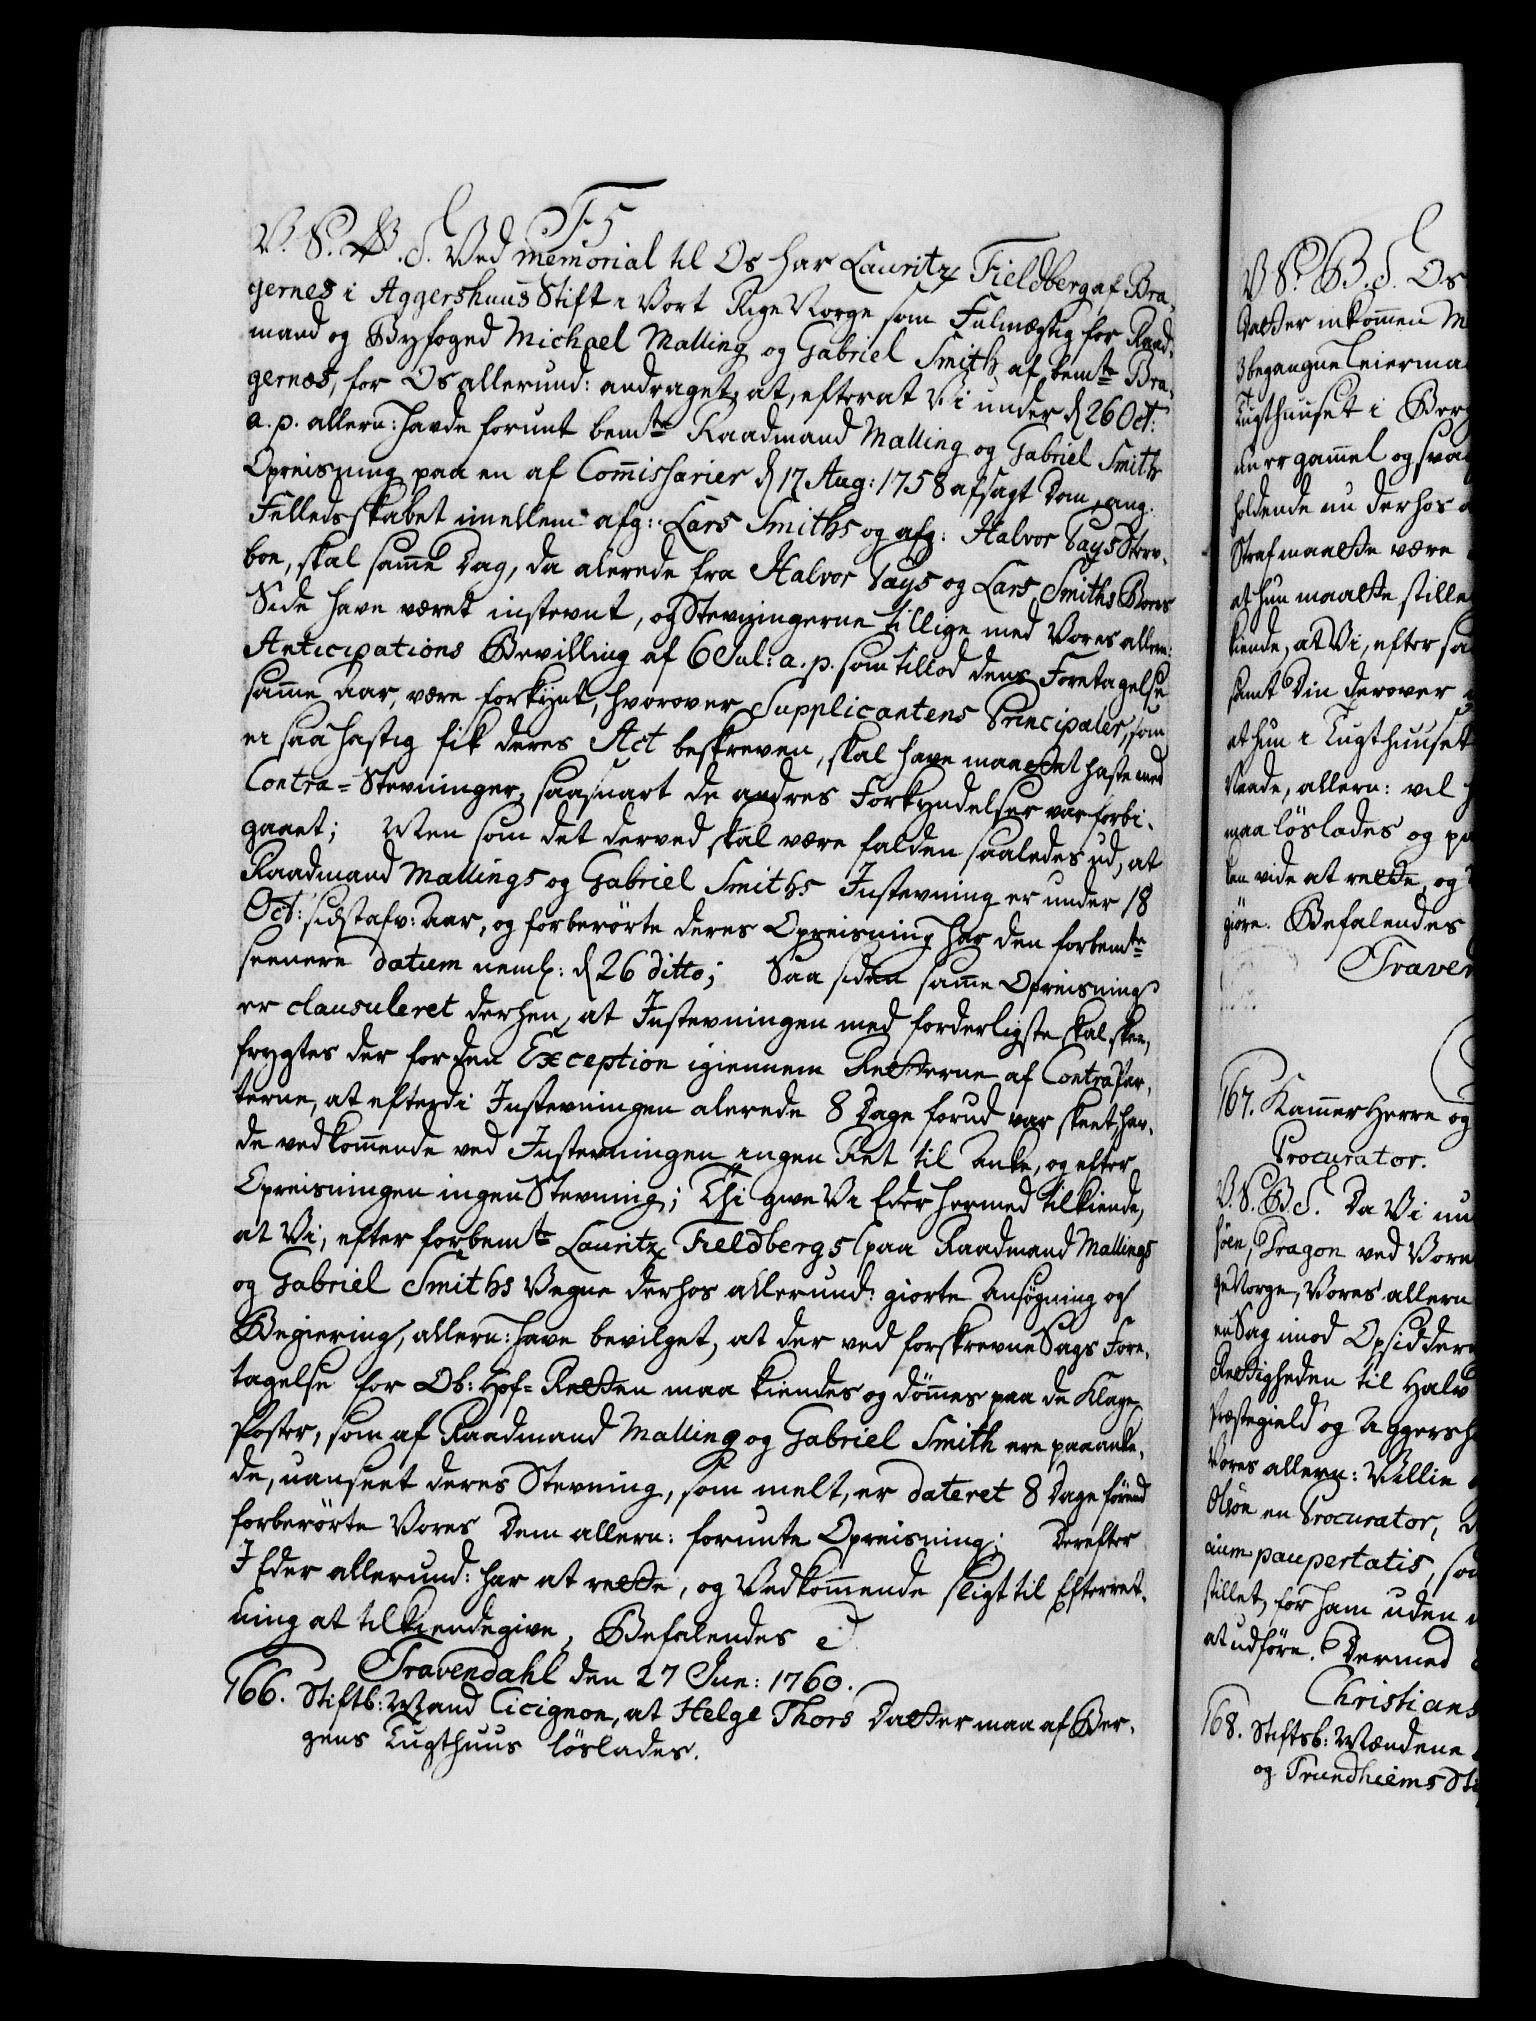 F5
V. S. G. T. Ved memorial til Os har Lauritz Fieldberg af Bra-
gernes i Aggershuus Stift i Vort Rige Norge som Fulmægtig for Raad-
mand og Byfoged Michael Malling og Gabriel Smith af bemte Bra-
gernes, for Os allerund: andraget, at, efterat Vi under d 26 Oct:
a. p. allern: havde forunt bemte Raadmand Malling og Gabriel Smith
Opreisning paa en af Commissarier d 17 Aug: 1758 afsagt Dom, ang.
Felledsskabet imellem afg: Lars Smiths og afg: Halvor Pays Sterv-
boe, skal samme Dag, da alerede fra Halvor Pays og Lars Smiths Boers
Side have været instevnt, og Stevningerne tillige med Vores allern:
Anticipations Bevilling af 6 Jul: a. p. som tillod dens Foretagelse
samme Aar, være forkynt, hvorover Supplicantens Principaler, som
ei saa hastig fik deres Act beskreven, skal have maattet haste med
Contra-Stevninger, saasnart de andres Forkyndelser var forbi-
gaaet; Men som det derved skal være falden saaledes ud, at
Raadmand Mallings og Gabriel Smiths Instevning er under 18
Oct: sidstafv: Aar, og forberörte deres Opreisning har den forbemte
seenere datum neml: d 26 ditto; Saa siden samme Opreisning
er clausuleret derhen, at Instevningen med forderligste skal skee,
frygtes der for den Exception igiennem Retterne af Contra Par-
terne, at efterdi Instevningen alerede 8 Dage forud var skeet, hav-
de vedkommende ved Instevningen ingen Ret til Anke, og efter
Opreisningen ingen Stevning; Thi give Vi Eder hermed tilkiende,
at Vi, efter forbemte Lauritz Fieldbergs paa Raadmand Mallings
og Gabriel Smiths Vegne derhos allerund: giorte Ansøgning og
Begiering, allern: have bevilget, at der ved forskrevne Sags Fore-
tagelse for Ob: Hof-Retten maa kiendes og dömmes paa de Klage
Poster, som af Raadmand Malling og Gabriel Smith ere paaanke-
de, uanseet deres Stevning, som melt, er dateret 8 Dage förend
forberörte Vores Dem allern: forunte Opreisning; Derefter
I Eder allerund: har at rette, og Vedkommende sligt til Efterret-
ning at tilkiendegive, Befalendes
Travendahl den 27 Jun: 1760.
166. Stiftb: Mand Cicignon, at Helge Thors Datter maa af Ber-
gens Tugthuus löslades.
V. S. G. T. Os
Datter inkommen
begangne Leierma
Tugthuuset i Berg
hun er gammel og svag
holdende nu derhos
Straf maatte være
at hun maatte stille
kiende, at Vi, efter
samt Din derover
at hun i Tugthuuset
Naade, allern: vil
maa löslades og
ken vide at rette, og
giöre. Befalendes
Traven
167. Kammer Herre og
Procurator.
V. S. G. T. Da Vi
Dragon ved Vore
ge Norge, Vores allern
en Sag imod Opsidder
Rettigheden til Halv
Præstegield og Aggersh
Vores allern: Villie
Olsön en Procurator,
paupertatis,
stillet, for ham uden
at udföre. Dermed
Christians
168. Stiftsb: Mændene
og Trundhiems